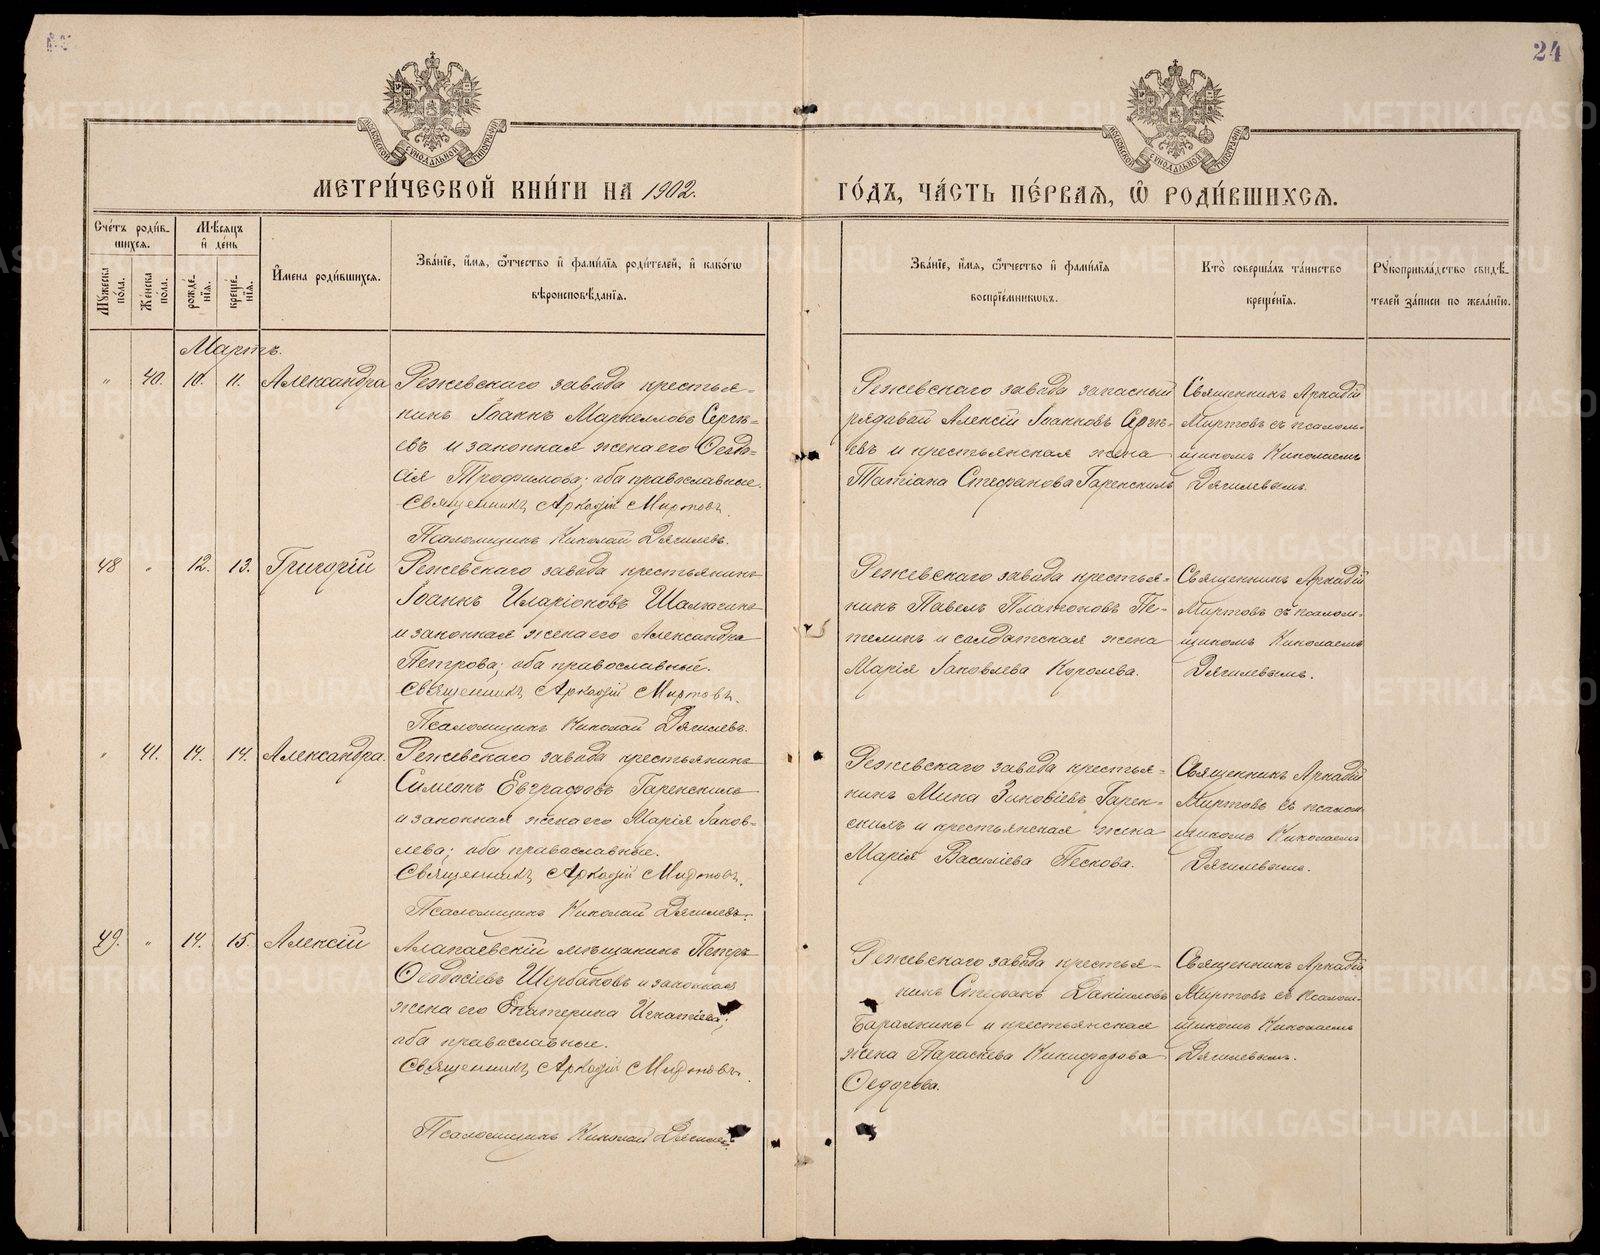 24
МОСКОВСКОЙ СѴНОДАЛЬНОЙ ТИПОГРАФІИ
МОСКОВСКОЙ СѴНОДАЛЬНОЙ ТИПОГРАФІИ
МЕТРИ́ЧЕСКОЙ КНИ́ГИ НА 1902.
ГО́ДЪ, ЧА́СТЬ ПЕ́РВАЯ, Ѽ РОДИ́ВШИХСЯ.
Сче́тъ роди́в-
шихся.
Мѣ́сяцъ
и҆ де́нь
Му́жеска по́ла.
Же́нска пола.
рожде́-нїя.
креще́-нїя.
И҆мена роди́вшихся.
Зва́нїе, и҆́мя, ѻ҆́тчество и҆ фами́лїя роди́телей, и҆ како́гѡ
вѣроисповѣ́данїя.
Зва́нїе, и҆́мя, ѻ҆́тчество и҆ фами́лїя
воспрїе́мникѡвъ.
Кто̀ соверша́лъ та́инство
креще́нїя.
Рꙋкоприкла́дство свидѣ́-
телей за́писи по жела́нїю.
Мартъ.
„ 40. 10. 11. Александра
Режевскаго завода крестья-
нинъ Іоаннъ Маркелловъ Сергѣ-
евъ и законная жена его Ѳеодо-
сія Трофимова; оба православные.
Священникъ Аркадій Миртовъ.
Псаломщикъ Николай Дягилевъ.
Режевскаго завода запасный
рядовой Алексій Іоанновъ Сергѣ-
евъ и крестьянская жена
Татіана Стефанова Гаренскихъ
Священникъ Аркадій
Миртовъ съ псалом-
щикомъ Николаемъ
Дягилевымъ.
48 „ 12. 13. Григорій
Режевскаго завода крестьянинъ
Іоаннъ Иларіоновъ Шалюгинъ
и законная жена его Александра
Петрова; оба православный.
Священникъ Аркадій Миртовъ.
Псаломщикъ Николай Дягилевъ.
Режевскаго завода крестья-
нинъ Павелъ Платоновъ Пе-
телинъ и солдатская жена
Марія Іаковлева Королева.
Священникъ Аркадій
Миртовъ съ псалом-
щикомъ Николаемъ
Дягилевымъ.
„ 41. 14. 14. Александра.
Режевскаго завода крестьянинъ
Симеонъ Евграфовъ Гаренскихъ
и законная жена его Марія Іаков-
лева; оба православные.
Священникъ Аркадій Миртовъ.
Псаломщикъ Николай Дягилевъ.
Режевскаго завода крестья-
нинъ Мина Зиновіевъ Гарен-
скихъ и крестьянская жена
Марія Василіева Пескова.
Священникъ Аркадій
Миртовъ съ псалом-
щикомъ Николаемъ
Дягилевымъ.
49. „ 14. 15. Алексій
Алапаевскій мѣщанинъ Петръ
Ѳеодосіевъ Щербаковъ и законная
жена его Екатерина Игнатіева;
оба православные.
Священникъ Аркадій Миртовъ.
Псаломщикъ Николай Дягилевъ.
Режевскаго завода крестья-
нинъ Стефанъ Даниловъ
Бараднинъ и крестьянская
жена Параскева Никифорова
Ѳедорова.
Священникъ Аркадій
Миртовъ съ псалом-
щикомъ Николаемъ
Дягилевымъ.